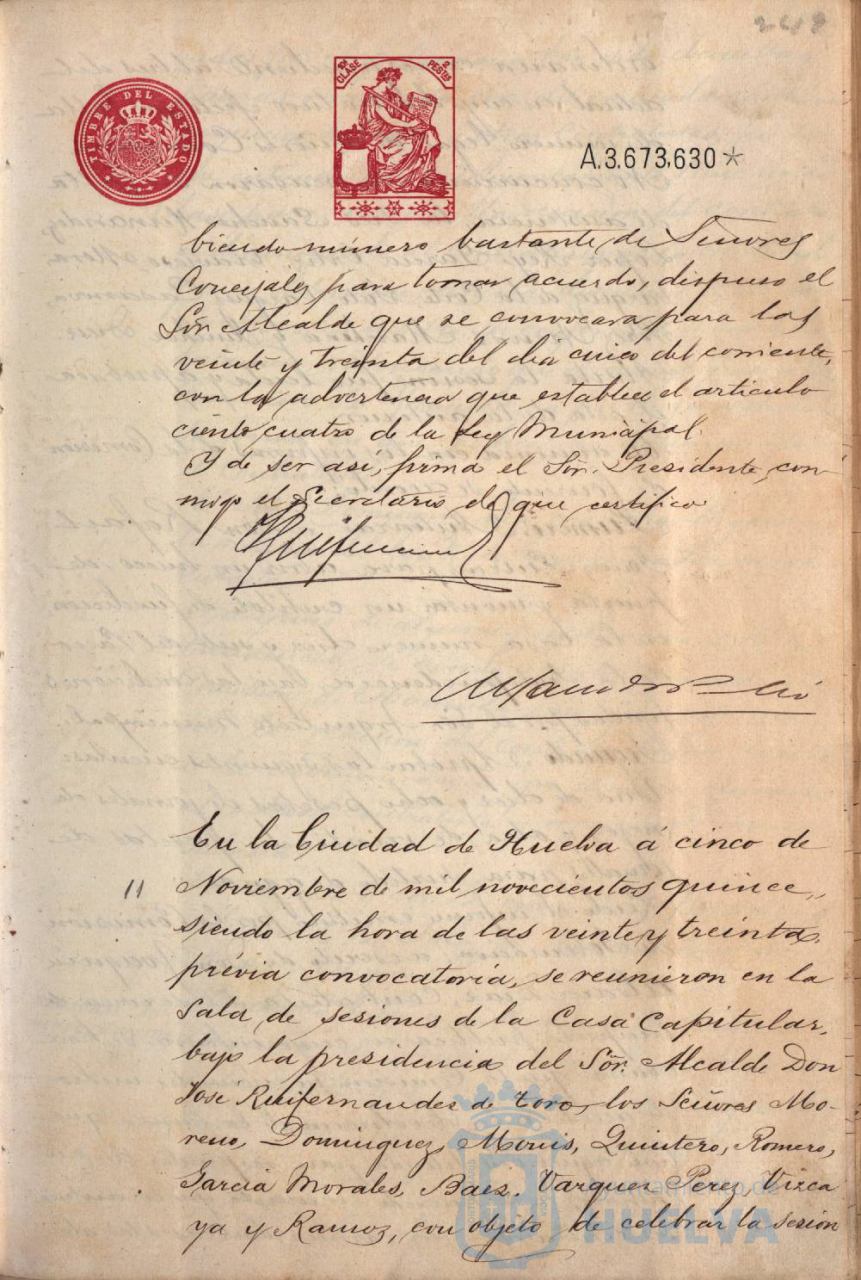 TIMBRE DEL ESTADO
CLASE
PESTAS
A.3.673,630*
biendo número bastante de Señores
Concejales para tomar acuerdo, dispuso el
Sór. Alcalde que se convocara para las
veinte y treinta del dia cinco del corriente,
con la advertencia que establece el articulo
ciento cuatro de la Ley Municipal.
Y de ser así, firma el Sór. Presidente con-
migo el Secretario de que certifico
En la Ciudad de Huelva á cinco de
11
Noviembre de mil novecientos quince,
siendo la hora de las veinte y treinta,
prévia convocatoria, se reunieron en la
Sala de sesiones de la Casa Capitular,
bajo la presidencia del Sór. Alcalde Don
José Ruifernandez de toro, los Señores Mo-
reno, Dominguez, Monis, Quintero, Romero,
García Morales, Baez, Vazquez Perez, Vizca
ya y Ramos, con objeto de celebrar la sesión
Ayuntamiento de
HUELVA